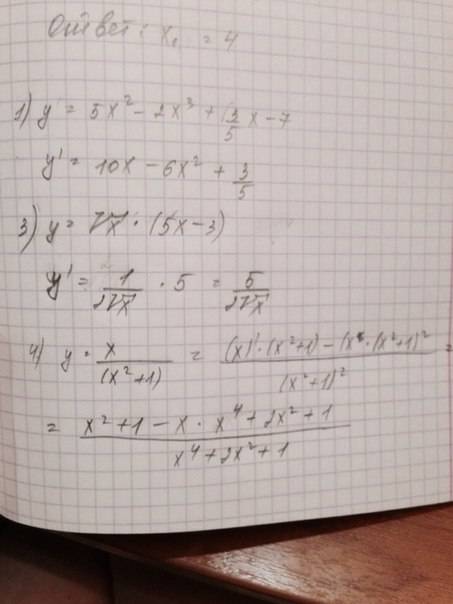 Ответ: x₁ = 4
1) y = 5x² - 2x³ + 3/5 x - 7
y' = 10x - 6x² + 3/5
3) y = √x · (5x - 3)
y' = 1/(2√x) · 5 = 5/(2√x)
4) y = x/(x²+1) = ((x)' · (x²+1) - (x · (x²+1)²)/(x²+1)² =
= (x² + 1 - x · x⁴ + 2x² + 1)/(x⁴ + 2x² + 1)